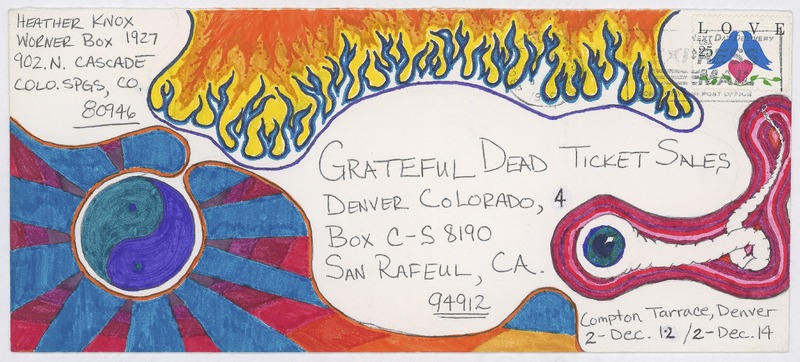 HEATHER KNOX
WORNER BOX 1927
902. N. CASCADE
COLO. SPGS, CO.
80946
LOVE
USA
25
NEXT DAY DELIVERY
POST OFFICE
GRATEFUL DEAD TICKET SALES
DENVER COLORADO, 4
BOX C-S 8190
SAN RAFEUL, CA.
94912
Compton Tarrace, Denver
2-Dec. 12 / 2-Dec. 14